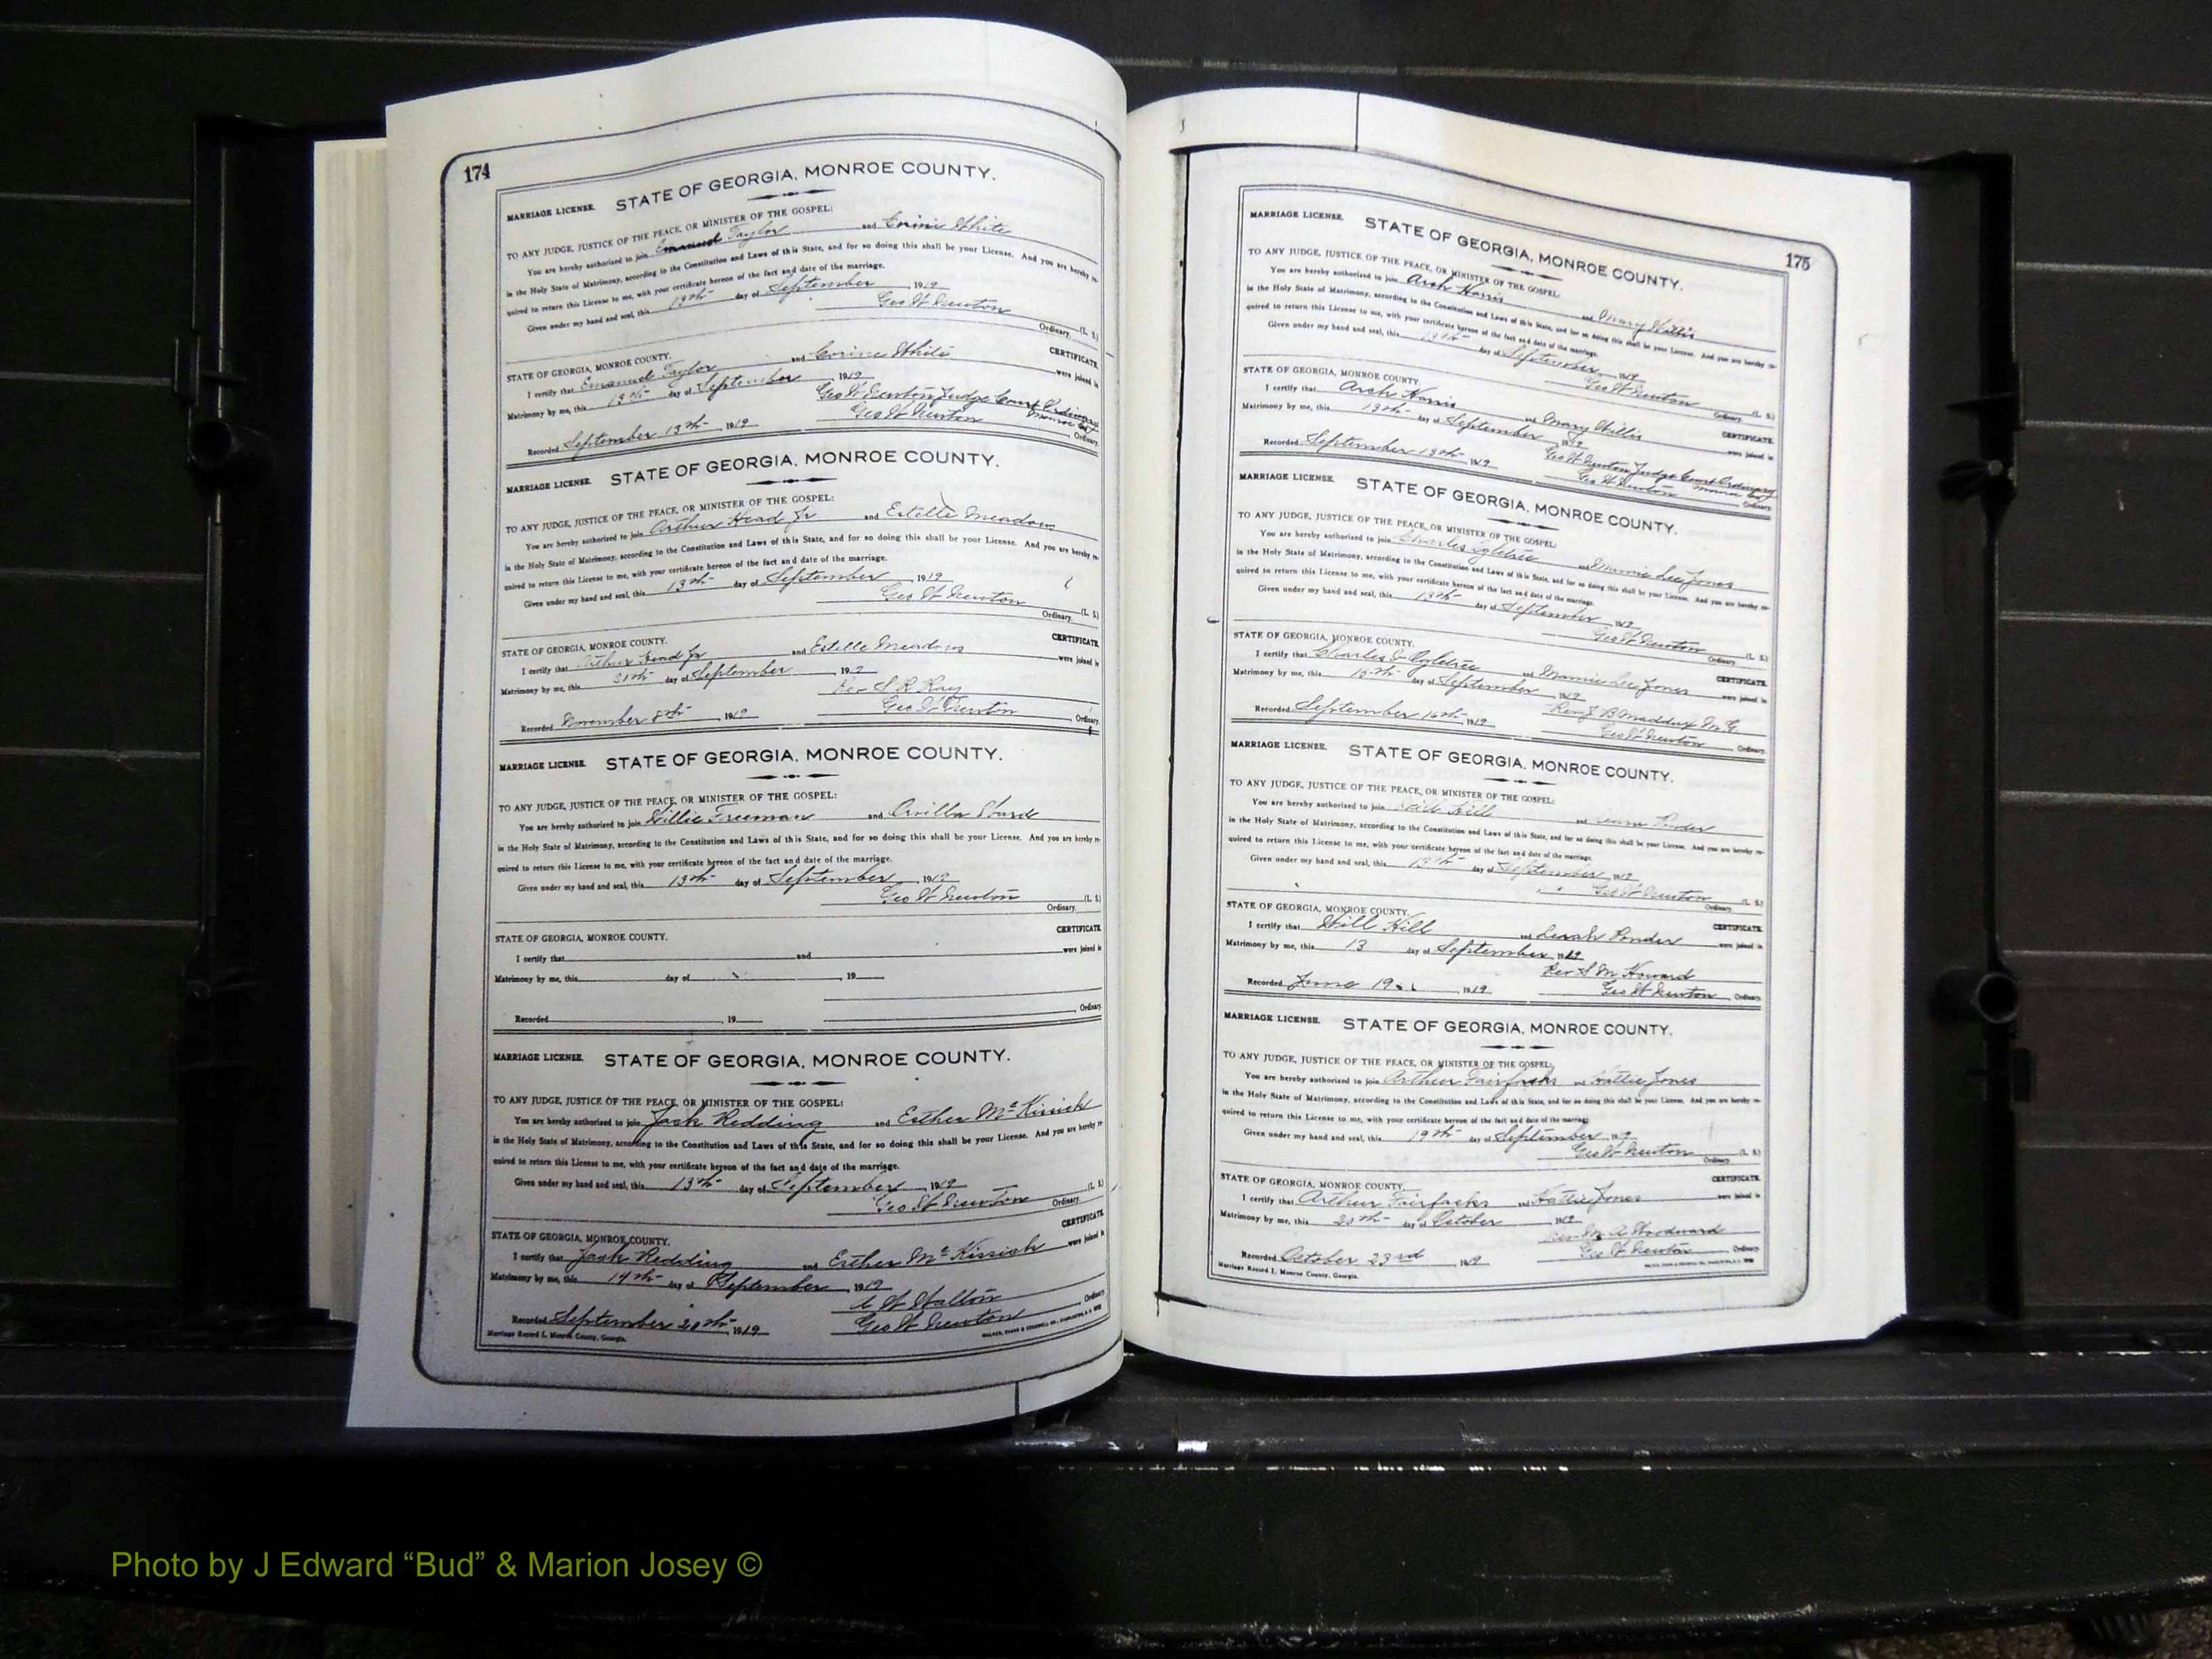 174
MARRIAGE LICENSE. STATE OF GEORGIA, MONROE COUNTY.
TO ANY JUDGE, JUSTICE OF THE PEACE, OR MINISTER OF THE GOSPEL:
You are hereby authorized to join Emanuel Taylor and Corine White
in the Holy State of Matrimony, according to the Constitution and Laws of this State, and for so doing this shall be your License. And you are hereby re-
quired to return this License to me, with your certificate hereon of the fact and date of the marriage.
Given under my hand and seal, this 13th day of September, 1919
Geo W Newton (L. S.)
Ordinary.
STATE OF GEORGIA, MONROE COUNTY. CERTIFICATE.
I certify that Emanuel Taylor and Corine White were joined in
Matrimony by me, this 13th day of September, 1919
Geo W Newton Judge Court Ordinary
Monroe Co
Recorded September 13th, 1919 Geo W Newton Ordinary.
MARRIAGE LICENSE. STATE OF GEORGIA, MONROE COUNTY.
TO ANY JUDGE, JUSTICE OF THE PEACE, OR MINISTER OF THE GOSPEL:
You are hereby authorized to join Arthur Head Jr and Estelle Meadows
in the Holy State of Matrimony, according to the Constitution and Laws of this State, and for so doing this shall be your License. And you are hereby re-
quired to return this License to me, with your certificate hereon of the fact and date of the marriage.
Given under my hand and seal, this 13th day of September, 1919
Geo W Newton (L. S.)
Ordinary.
STATE OF GEORGIA, MONROE COUNTY. CERTIFICATE.
I certify that Arthur Head Jr and Estelle Meadows were joined in
Matrimony by me, this day of September, 1919
Rev S R Ray
Recorded November 8th, 1919 Geo W Newton Ordinary.
MARRIAGE LICENSE. STATE OF GEORGIA, MONROE COUNTY.
TO ANY JUDGE, JUSTICE OF THE PEACE, OR MINISTER OF THE GOSPEL:
You are hereby authorized to join Willie Freeman and
in the Holy State of Matrimony, according to the Constitution and Laws of this State, and for so doing this shall be your License. And you are hereby re-
quired to return this License to me, with your certificate hereon of the fact and date of the marriage.
Given under my hand and seal, this 13th day of September, 1919
Geo W Newton (L. S.)
Ordinary.
STATE OF GEORGIA, MONROE COUNTY. CERTIFICATE.
I certify that and were joined in
Matrimony by me, this day of , 19
Recorded , 19 Ordinary.
MARRIAGE LICENSE. STATE OF GEORGIA, MONROE COUNTY.
TO ANY JUDGE, JUSTICE OF THE PEACE, OR MINISTER OF THE GOSPEL:
You are hereby authorized to join Jack Redding and Esther McKissick
in the Holy State of Matrimony, according to the Constitution and Laws of this State, and for so doing this shall be your License. And you are hereby re-
quired to return this License to me, with your certificate hereon of the fact and date of the marriage.
Given under my hand and seal, this 13th day of September, 1919
Geo W Newton (L. S.)
Ordinary.
STATE OF GEORGIA, MONROE COUNTY. CERTIFICATE.
I certify that Jack Redding and Esther McKissick were joined in
Matrimony by me, this 14th day of September, 1919
A W Walton
Recorded September 20th, 1919 Geo W Newton Ordinary.
Marriage Record I, Monroe County, Georgia.
175
MARRIAGE LICENSE. STATE OF GEORGIA, MONROE COUNTY.
TO ANY JUDGE, JUSTICE OF THE PEACE, OR MINISTER OF THE GOSPEL:
You are hereby authorized to join Arch Harris and Mary Willis
in the Holy State of Matrimony, according to the Constitution and Laws of this State, and for so doing this shall be your License. And you are hereby re-
quired to return this License to me, with your certificate hereon of the fact and date of the marriage.
Given under my hand and seal, this 13th day of September, 1919
Geo W Newton (L. S.)
Ordinary.
STATE OF GEORGIA, MONROE COUNTY. CERTIFICATE.
I certify that Arch Harris and Mary Willis were joined in
Matrimony by me, this 13th day of September, 1919
Geo W Newton Judge Court Ordinary
Monroe Co
Recorded September 13th, 1919 Geo W Newton Ordinary.
MARRIAGE LICENSE. STATE OF GEORGIA, MONROE COUNTY.
TO ANY JUDGE, JUSTICE OF THE PEACE, OR MINISTER OF THE GOSPEL:
You are hereby authorized to join Charles Ogletree and Mamie Lee Jones
in the Holy State of Matrimony, according to the Constitution and Laws of this State, and for so doing this shall be your License. And you are hereby re-
quired to return this License to me, with your certificate hereon of the fact and date of the marriage.
Given under my hand and seal, this 13th day of September, 1919
Geo W Newton (L. S.)
Ordinary.
STATE OF GEORGIA, MONROE COUNTY. CERTIFICATE.
I certify that Charles Ogletree and Mamie Lee Jones were joined in
Matrimony by me, this 15th day of September, 1919
Rev J B Maddux M. G.
Recorded September 16th, 1919 Geo W Newton Ordinary.
MARRIAGE LICENSE. STATE OF GEORGIA, MONROE COUNTY.
TO ANY JUDGE, JUSTICE OF THE PEACE, OR MINISTER OF THE GOSPEL:
You are hereby authorized to join Will Hill and Ponder
in the Holy State of Matrimony, according to the Constitution and Laws of this State, and for so doing this shall be your License. And you are hereby re-
quired to return this License to me, with your certificate hereon of the fact and date of the marriage.
Given under my hand and seal, this 13th day of September, 1919
Geo W Newton (L. S.)
Ordinary.
STATE OF GEORGIA, MONROE COUNTY. CERTIFICATE.
I certify that Will Hill and Leah Ponder were joined in
Matrimony by me, this 13 day of September, 1919
Rev S M Howard
Recorded June 19, 1919 Geo W Newton Ordinary.
MARRIAGE LICENSE. STATE OF GEORGIA, MONROE COUNTY.
TO ANY JUDGE, JUSTICE OF THE PEACE, OR MINISTER OF THE GOSPEL:
You are hereby authorized to join Arthur Fairfacks and Hattie Jones
in the Holy State of Matrimony, according to the Constitution and Laws of this State, and for so doing this shall be your License. And you are hereby re-
quired to return this License to me, with your certificate hereon of the fact and date of the marriage.
Given under my hand and seal, this 19th day of September, 1919
Geo W Newton (L. S.)
Ordinary.
STATE OF GEORGIA, MONROE COUNTY. CERTIFICATE.
I certify that Arthur Fairfacks and Hattie Jones were joined in
Matrimony by me, this 20th day of October, 1919
Rev M A Woodward
Recorded October 23rd, 1919 Geo W Newton Ordinary.
Marriage Record I, Monroe County, Georgia.
Photo by J Edward “Bud” & Marion Josey ©